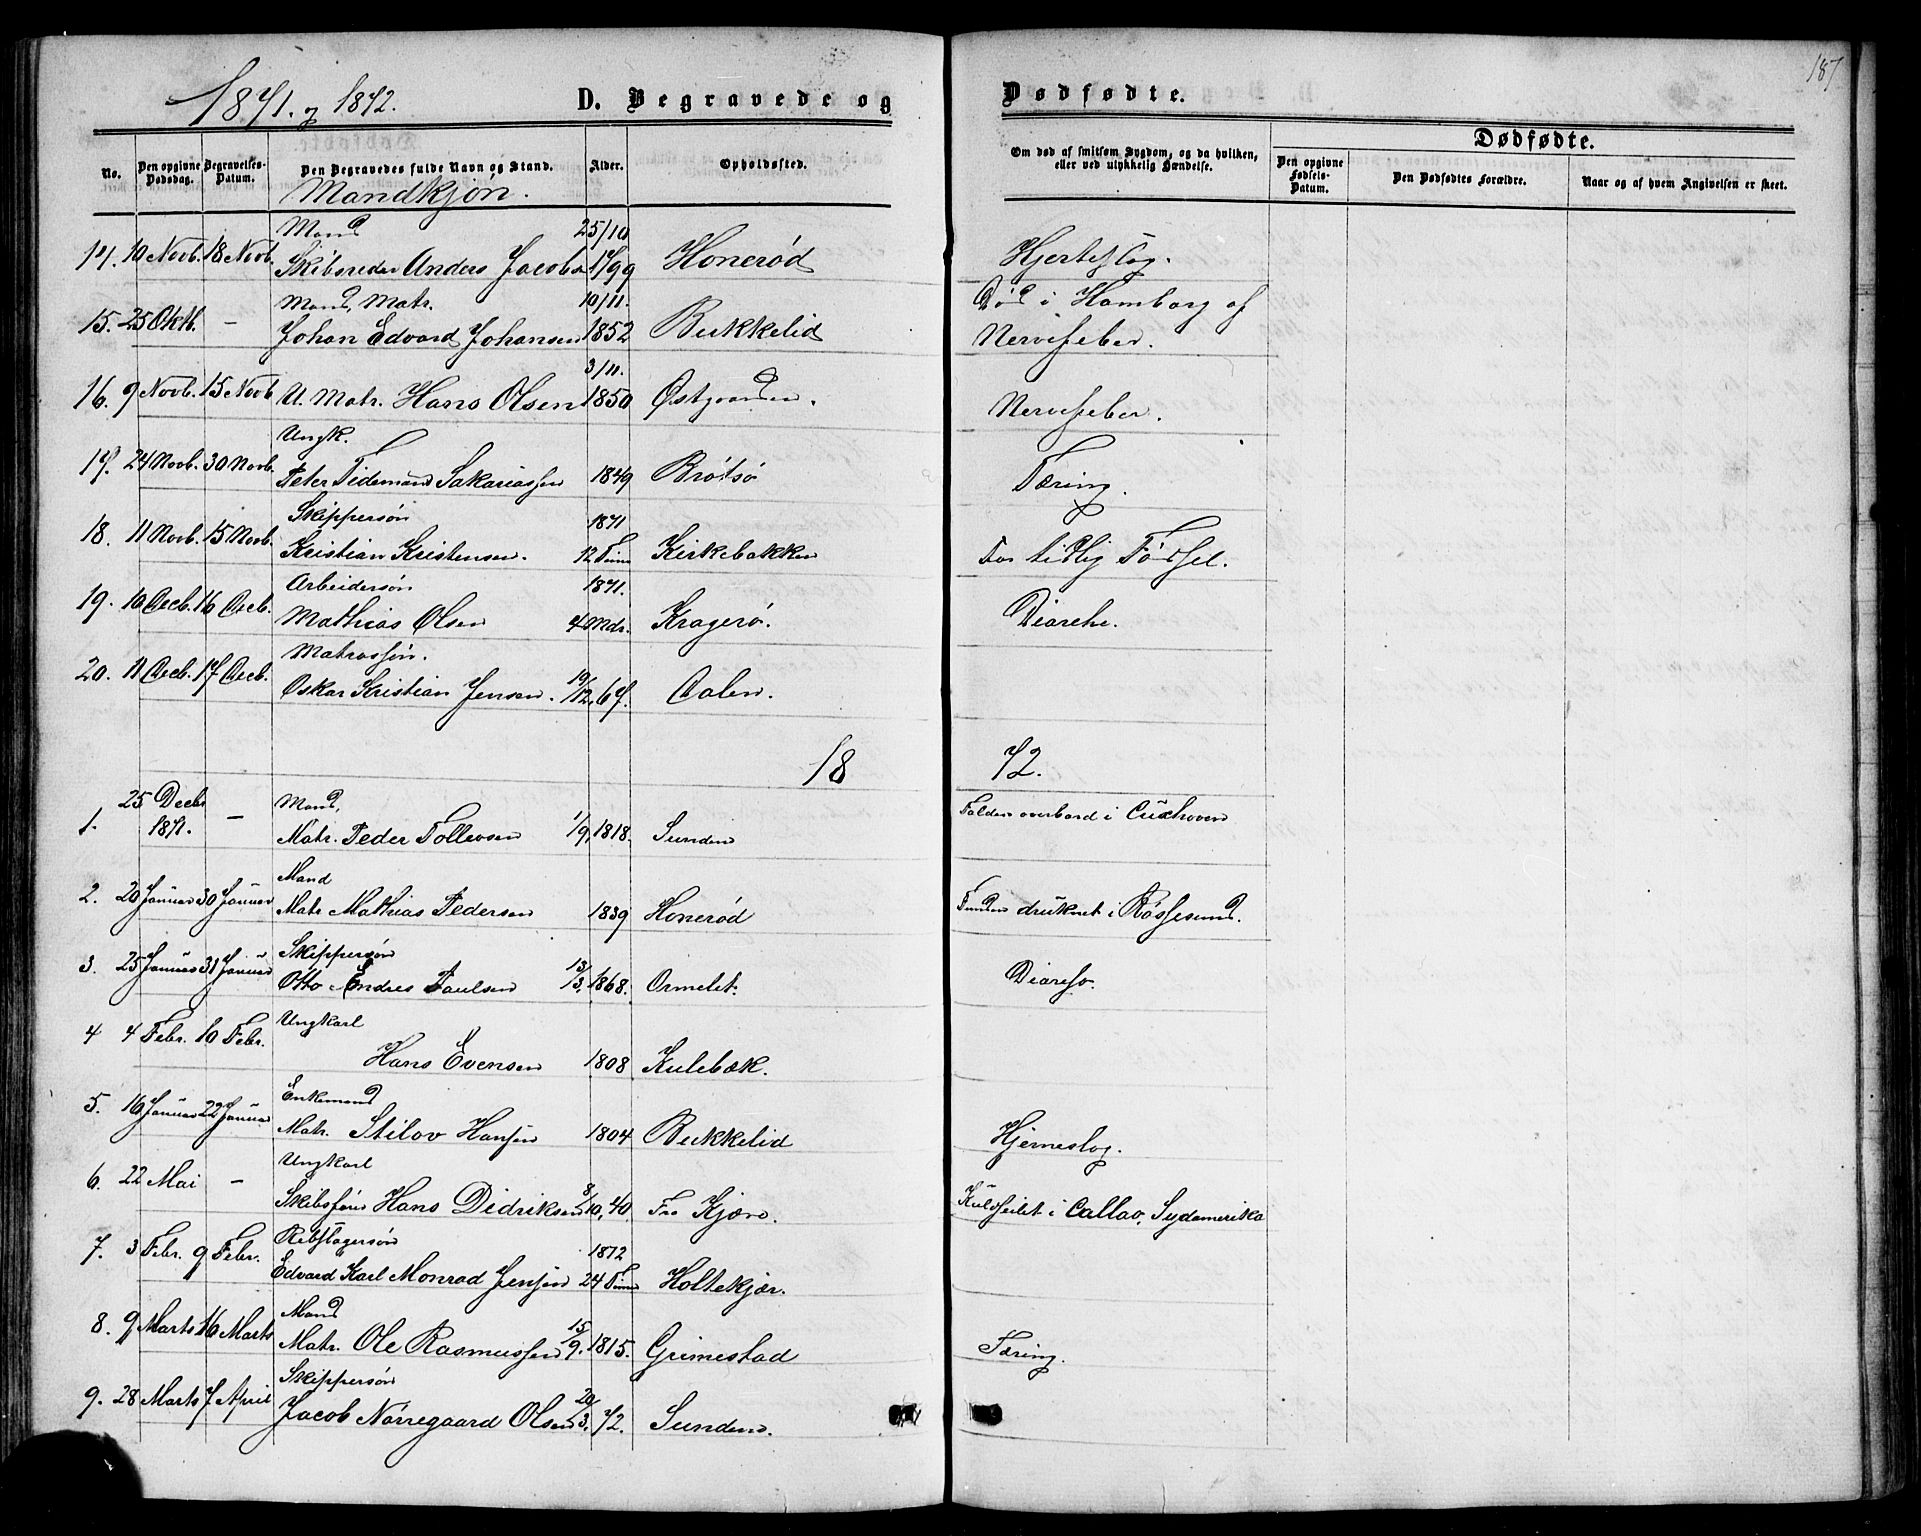 187
1871. og 1872.
D. Begravede og Dødfødte.
No.
Den opgivne Dødsdag.
Begravelses-Datum.
Den Begravedes fulde Navn og Stand.
Alder.
Opholdssted.
Om død af smitsom Sygdom, og da hvilken, eller ved ulykkelig Hændelse.
Dødfødte.
Den opgivne Fødsels-Datum.
Den Dødfødtes Forældre.
Naar og af hvem Angivelsen er skeet.
Mandkjøn.
Mand 25/10
14. 10 Novb. 18 Novb. Skibsreder Anders Jacobs 1799 Honerød Hjerteslag.
Mand, Matr. 10/11. Død i Hamborg af
15. 25 Oktb. - Johan Edvard Johansen 1852 Bukkelid Nervefeber.
3/11.
16. 9 Novb. 15 Novb U. Matr. Hans Olsen 1850 Østgaarden. Nervefeber.
Ungk.
17. 24 Novb. 30 Novb. Peter Tidemand Sakariassen 1849 Brøtsø Tæring.
Skippersøn 1871
18. 11 Novb. 15 Novb. Kristian Kristensen. 12 Time Kirkebakken For tidlig Fødsel.
Arbeidersøn 1871.
19. 10 Decb. 16 Decb. Mathias Olsen 4 Mdr. Kragerø. Diarehe.
Matrossøn.
20. 11 Decb. 17 Decb. Oskar Kristian Jensen. 19/12. 67. Dalen.
18 72.
25 Decbr Mand,
1. 1871. - Matr. Peder Tollevsen 1/9 1818. Sunden Falden overbord i Cuxhaven
Mand
2. 20 Januar 30 Januar Matr Mathias Pedersen 1839 Honerød Funden druknet i Røssesund.
Skippersøn
3. 25 Januar 31 Januar Otto Andres Paulsen 13/3. 1868. Ormelet. Diareho.
Ungkarl
4 4 Febr. 10 Febr. Hans Evensen 1808 Kulebæk.
Enkemand
5. 16 Januar 22 Januar Matr. Stilov Hansen 1804 Bukkelid Hjerneslag.
Ungkarl
6. 22 Mai - Skibsfører Hans Didriksen 8/10, 40. Fra Kjærn. Kuldseilet i Callao, Sydamerika
Rebslagersøn 1872
7. 3 Febr. 9 Febr. Edvard Karl Monrad Jensen 24 Time Holtekjær.
Mand
8. 9 Marts 16 Marts Matr. Ole Rasmussen 15/9. 1815. Grimestad Tæring.
Skippersøn
9. 28 Marts 7 April Jacob Nørregaard Olsen 20/3. 72. Sunden.